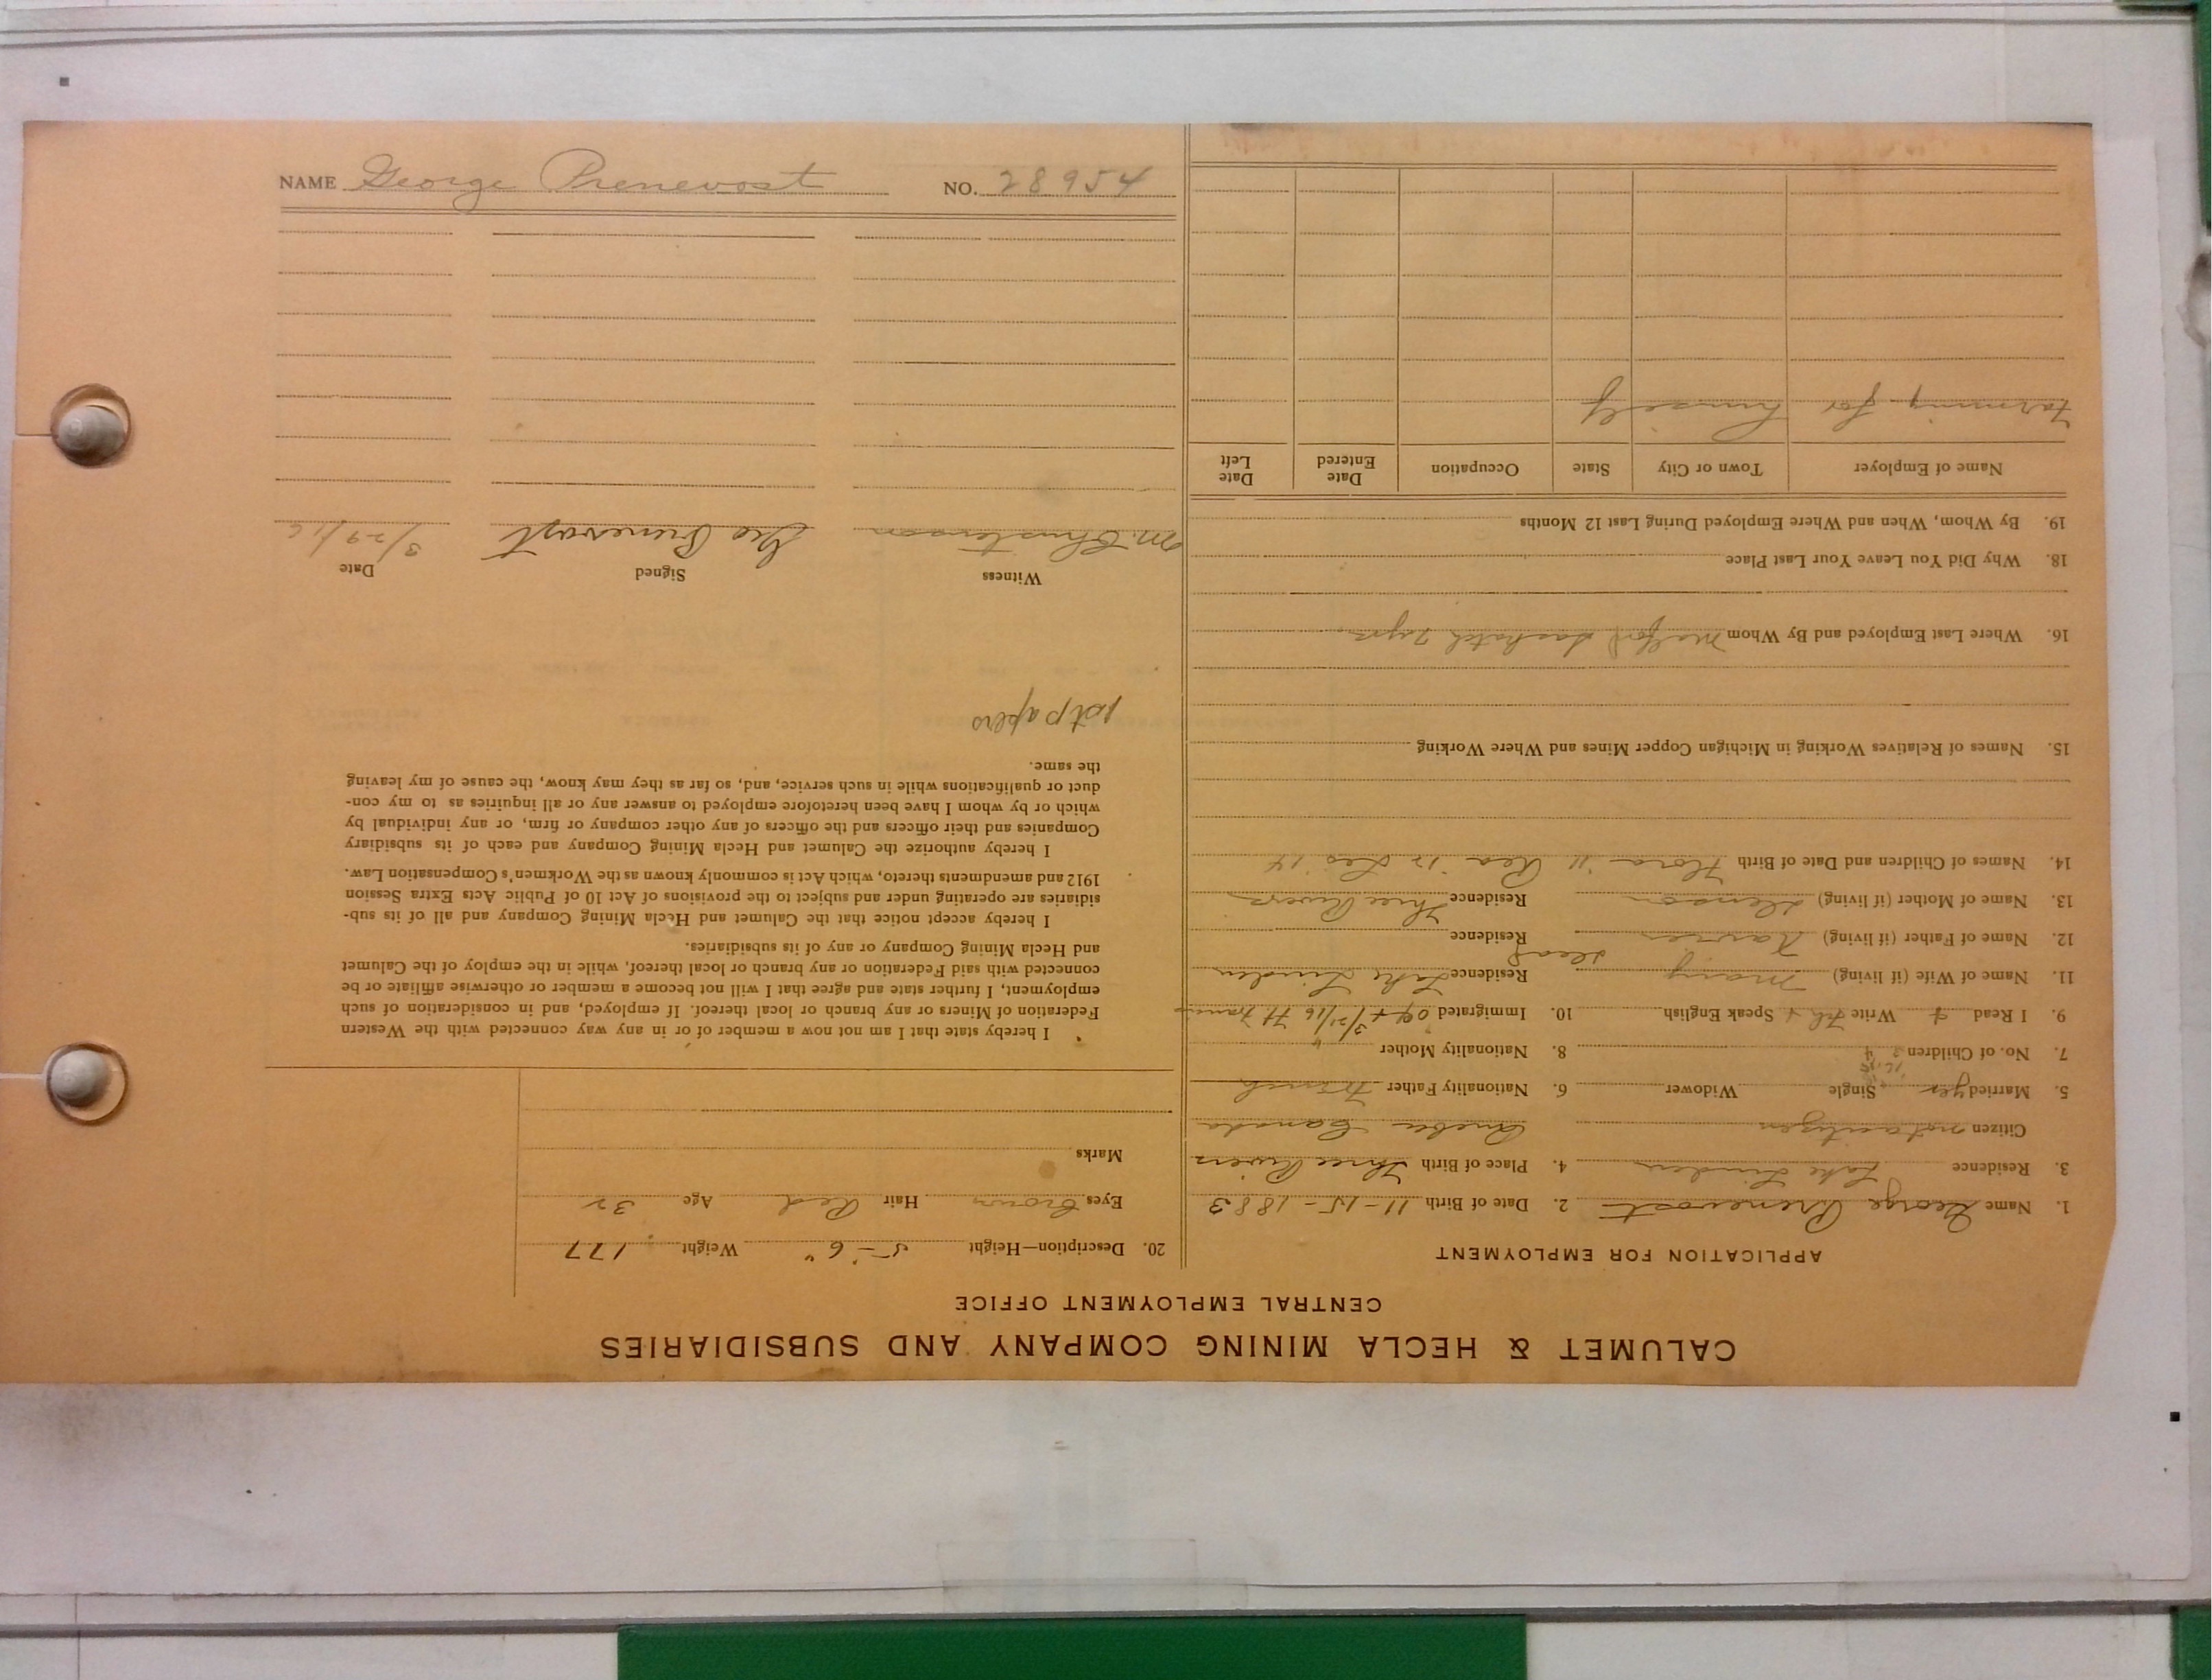 CALUMET & HECLA MINING COMPANY AND SUBSIDIARIES
CENTRAL EMPLOYMENT OFFICE
APPLICATION FOR EMPLOYMENT
1. Name George Prenevost 2. Date of Birth 11-15-1883
3. Residence Lake Linden 4. Place of Birth Three Rivers
Citizen not a citizen Quebec Canada
5. Married yes Single Widower 6. Nationality Father French
7. No. of Children 8. Nationality Mother "
9. I Read + Write Speak English 10. Immigrated 3/21/16
11. Name of Wife (if living) Mary Residence Lake Linden
12. Name of Father (if living) dead Residence
13. Name of Mother (if living) Residence Three Rivers
14. Names of Children and Date of Birth Flora '11 Rea '12 Leo '14
15. Names of Relatives Working in Michigan Copper Mines and Where Working
16. Where Last Employed and By Whom
18. Why Did You Leave Your Last Place
19. By Whom, When and Where Employed During Last 12 Months
Name of Employer Town or City State Occupation Date Entered Date Left
Farming for himself
20. Description—Height 5'-6" Weight 177
Eyes Brown Hair Red Age 32
Marks
I hereby state that I am not now a member of or in any way connected with the Western
Federation of Miners or any branch or local thereof. If employed, and in consideration of such
employment, I further state and agree that I will not become a member or otherwise affiliate or be
connected with said Federation or any branch or local thereof, while in the employ of the Calumet
and Hecla Mining Company or any of its subsidiaries.
I hereby accept notice that the Calumet and Hecla Mining Company and all of its sub-
sidiaries are operating under and subject to the provisions of Act 10 of Public Acts Extra Session
1912 and amendments thereto, which Act is commonly known as the Workmen's Compensation Law.
I hereby authorize the Calumet and Hecla Mining Company and each of its subsidiary
Companies and their officers and the officers of any other company or firm, or any individual by
which or by whom I have been heretofore employed to answer any or all inquiries as to my con-
duct or qualifications while in such service, and, so far as they may know, the cause of my leaving
the same.
1st papers
Witness Signed Date
M. Christenson Geo Prenevost 3/29/16
NAME George Prenevost NO. 28954